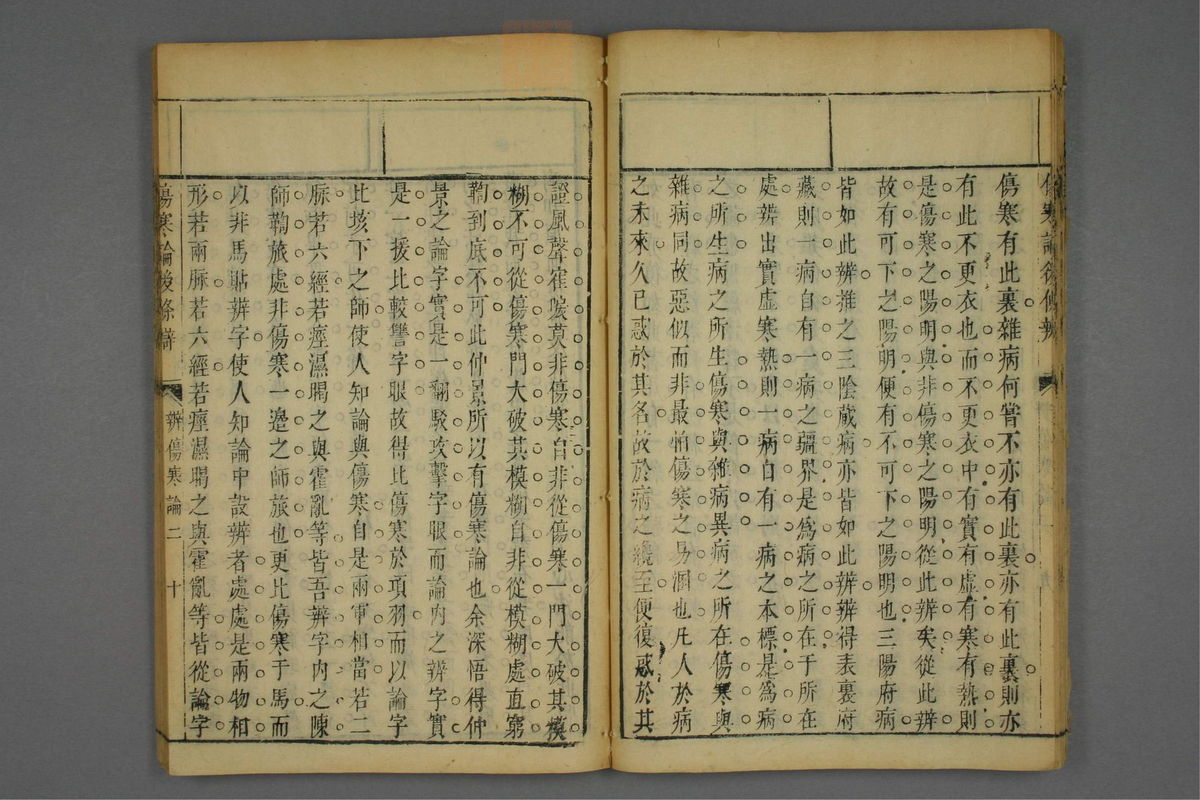 傷寒論後條辨
傷寒有此裏雜病何嘗不亦有此裏亦有此裏則亦
有此不更衣也而不更衣中有實有虛有寒有熱則
是傷寒之陽明與非傷寒之陽明從此辨矣從此辨
故有可下之陽明便有不可下之陽明也三陽府病
皆如此辨推之三陰蔵病亦皆如此辨辨得表裏府
藏則一病自有一病之疆界是為病之所在于所在
處辨出實虛寒熱則一病自有一病之本標是為病
之所生病之所生傷寒與雜病異病之所在傷寒與
雜病同故惡似而非最怕傷寒之易溷也凡人於病
之未來久已惑於其名故於病之纔至便復惑於其
證風聲寉唳莫非傷寒自非從傷寒一門大破其模
糊不可從傷寒門大破其模糊自非從模糊處直窮
到底不可此仲景所以有傷寒論也余深悟得仲
景之論字實是一翻駁攻擊字眼而論內之辨字實
是一援比較讐字眼故得比傷寒於項羽而以論字
比垓下之師使人知論與傷寒自是兩軍相當若二
脈若六經若痙濕暍之與霍亂等皆吾辨字內之陳
師鞫旅處非傷寒一邉之師旅也更比傷寒于馬而
以非馬貼辨字使人知論中設辨者處處是兩物相
形若兩脈若六經若痙濕暍之與霍亂等皆從論字
傷寒論後條辨
辨傷寒論二
十